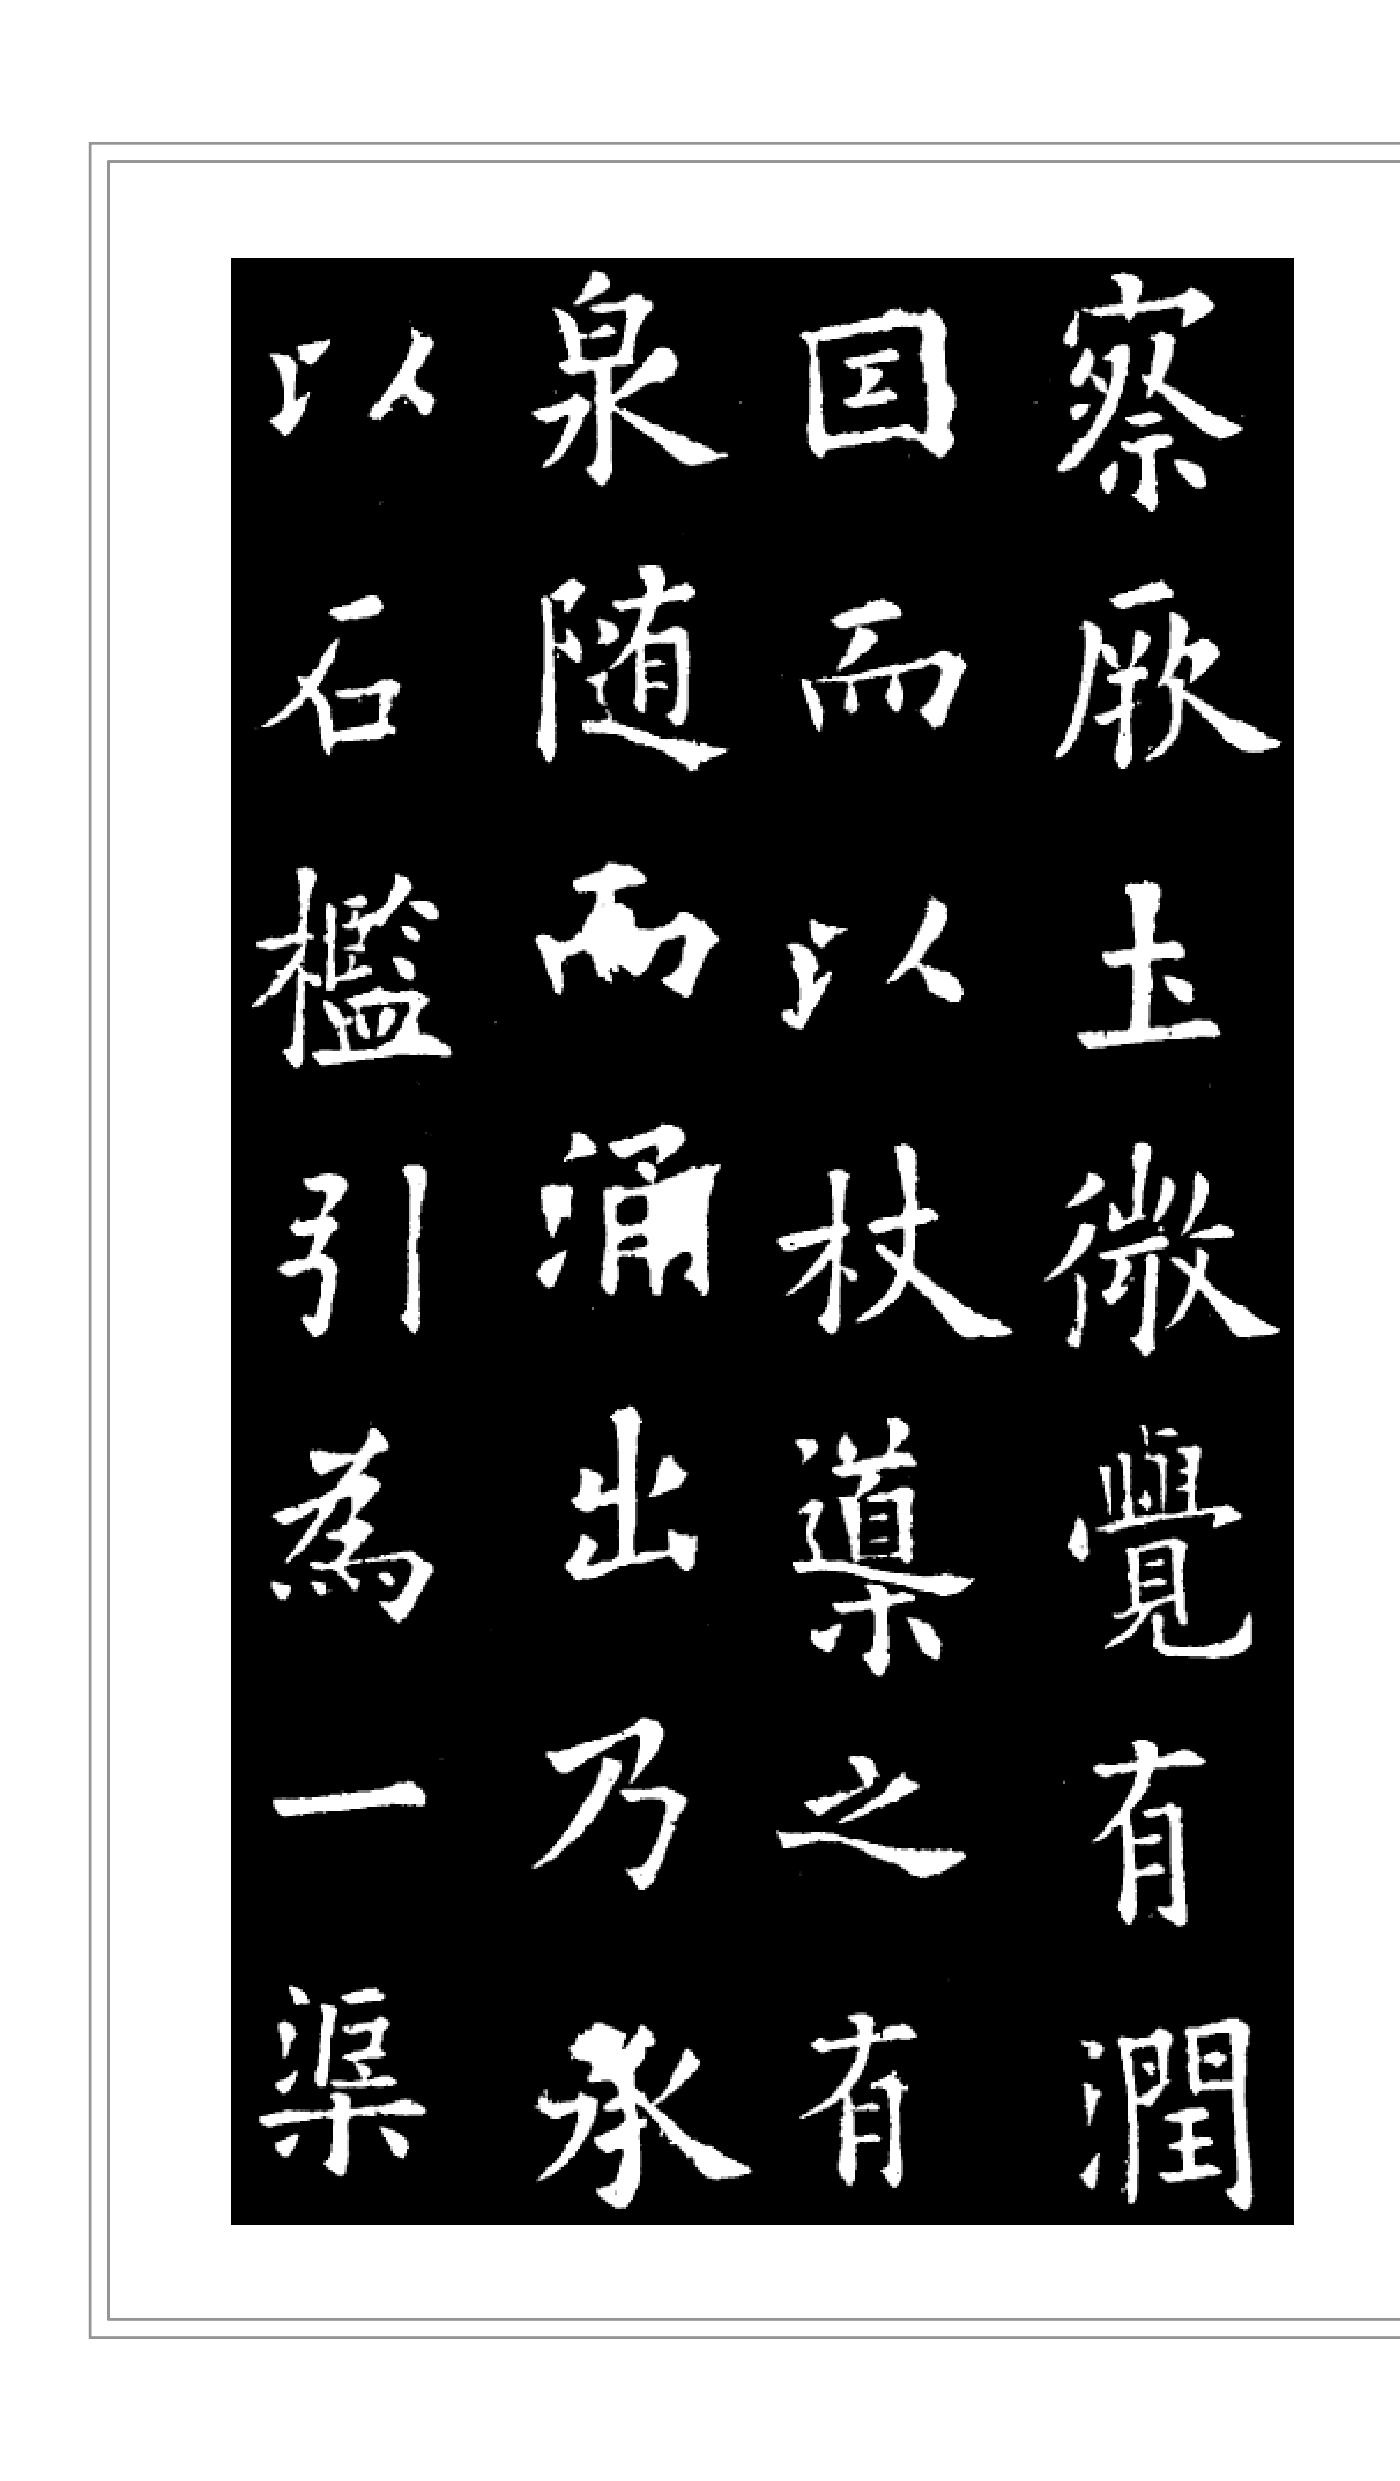 察厥土微覺有潤
因而以杖導之有
泉随而涌出乃承
以石檻引為一渠